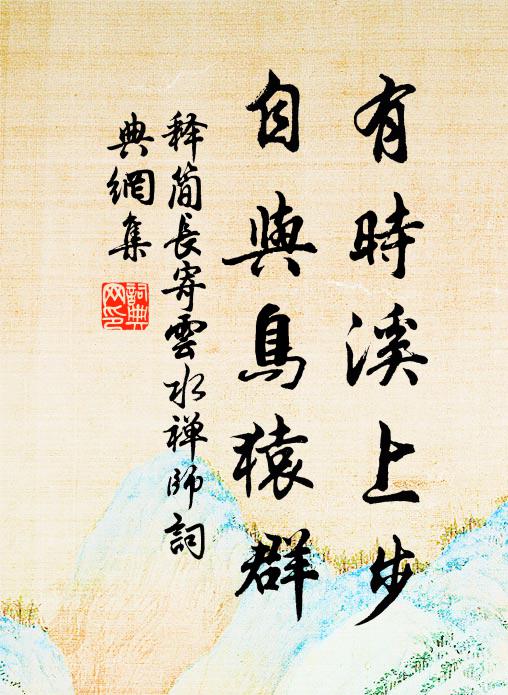 有時溪上步
自與鳥猿群
釋简長寄雲水禅師詞
典網集
詞典網印